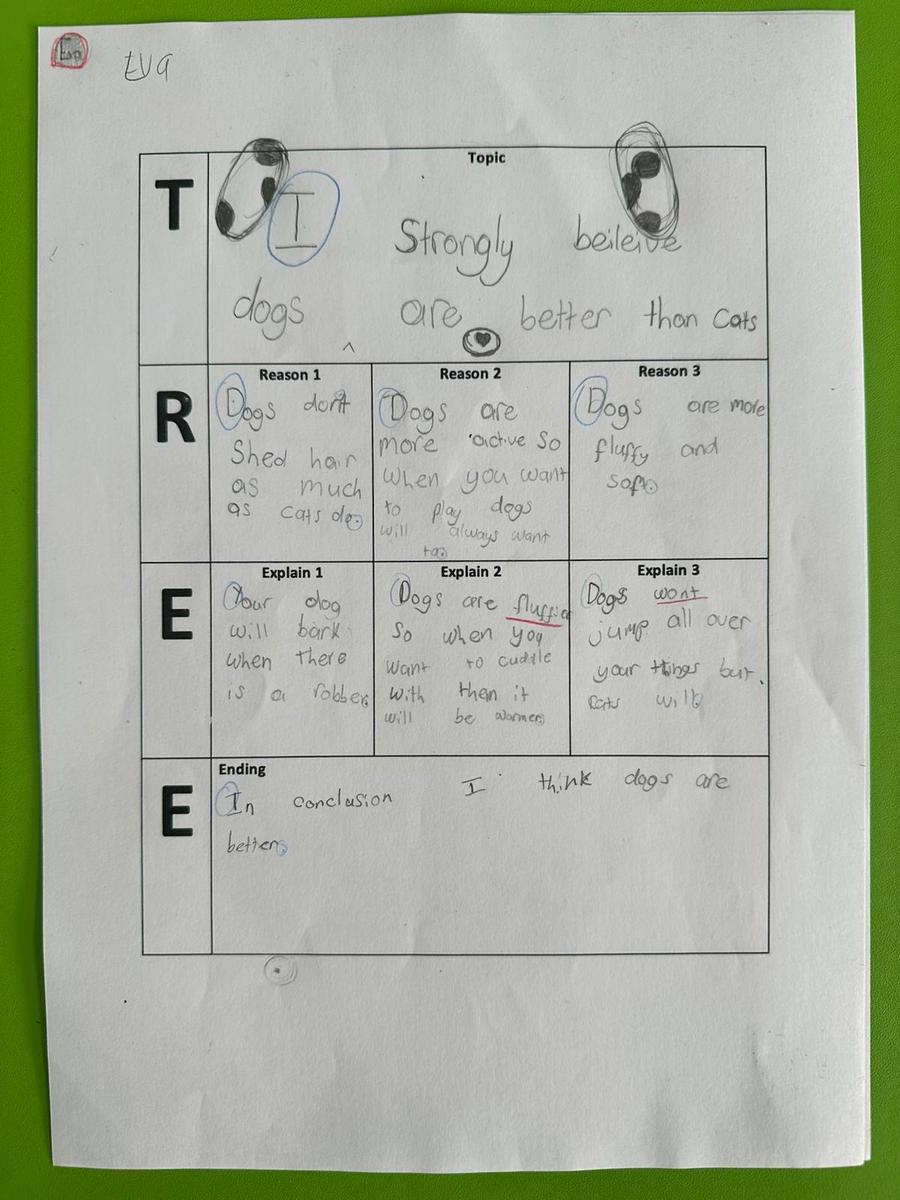 Eva
Eva
T
Topic
I Strongly beileive
dogs are better than cats
R
Reason 1
Dogs don't
Shed hair
as much
as cats do.
Reason 2
Dogs are
more active so
when you want
to play dogs
will always want
too
Reason 3
Dogs are more
fluffy and
soft.
E
Explain 1
Your dog
will bark
when there
is a robber
Explain 2
Dogs are fluffier
so when you
want to cuddle
with them it
will be warmer.
Explain 3
Dogs wont
jump all over
your things but
cats will.
E
Ending
In conclusion I think dogs are
better.